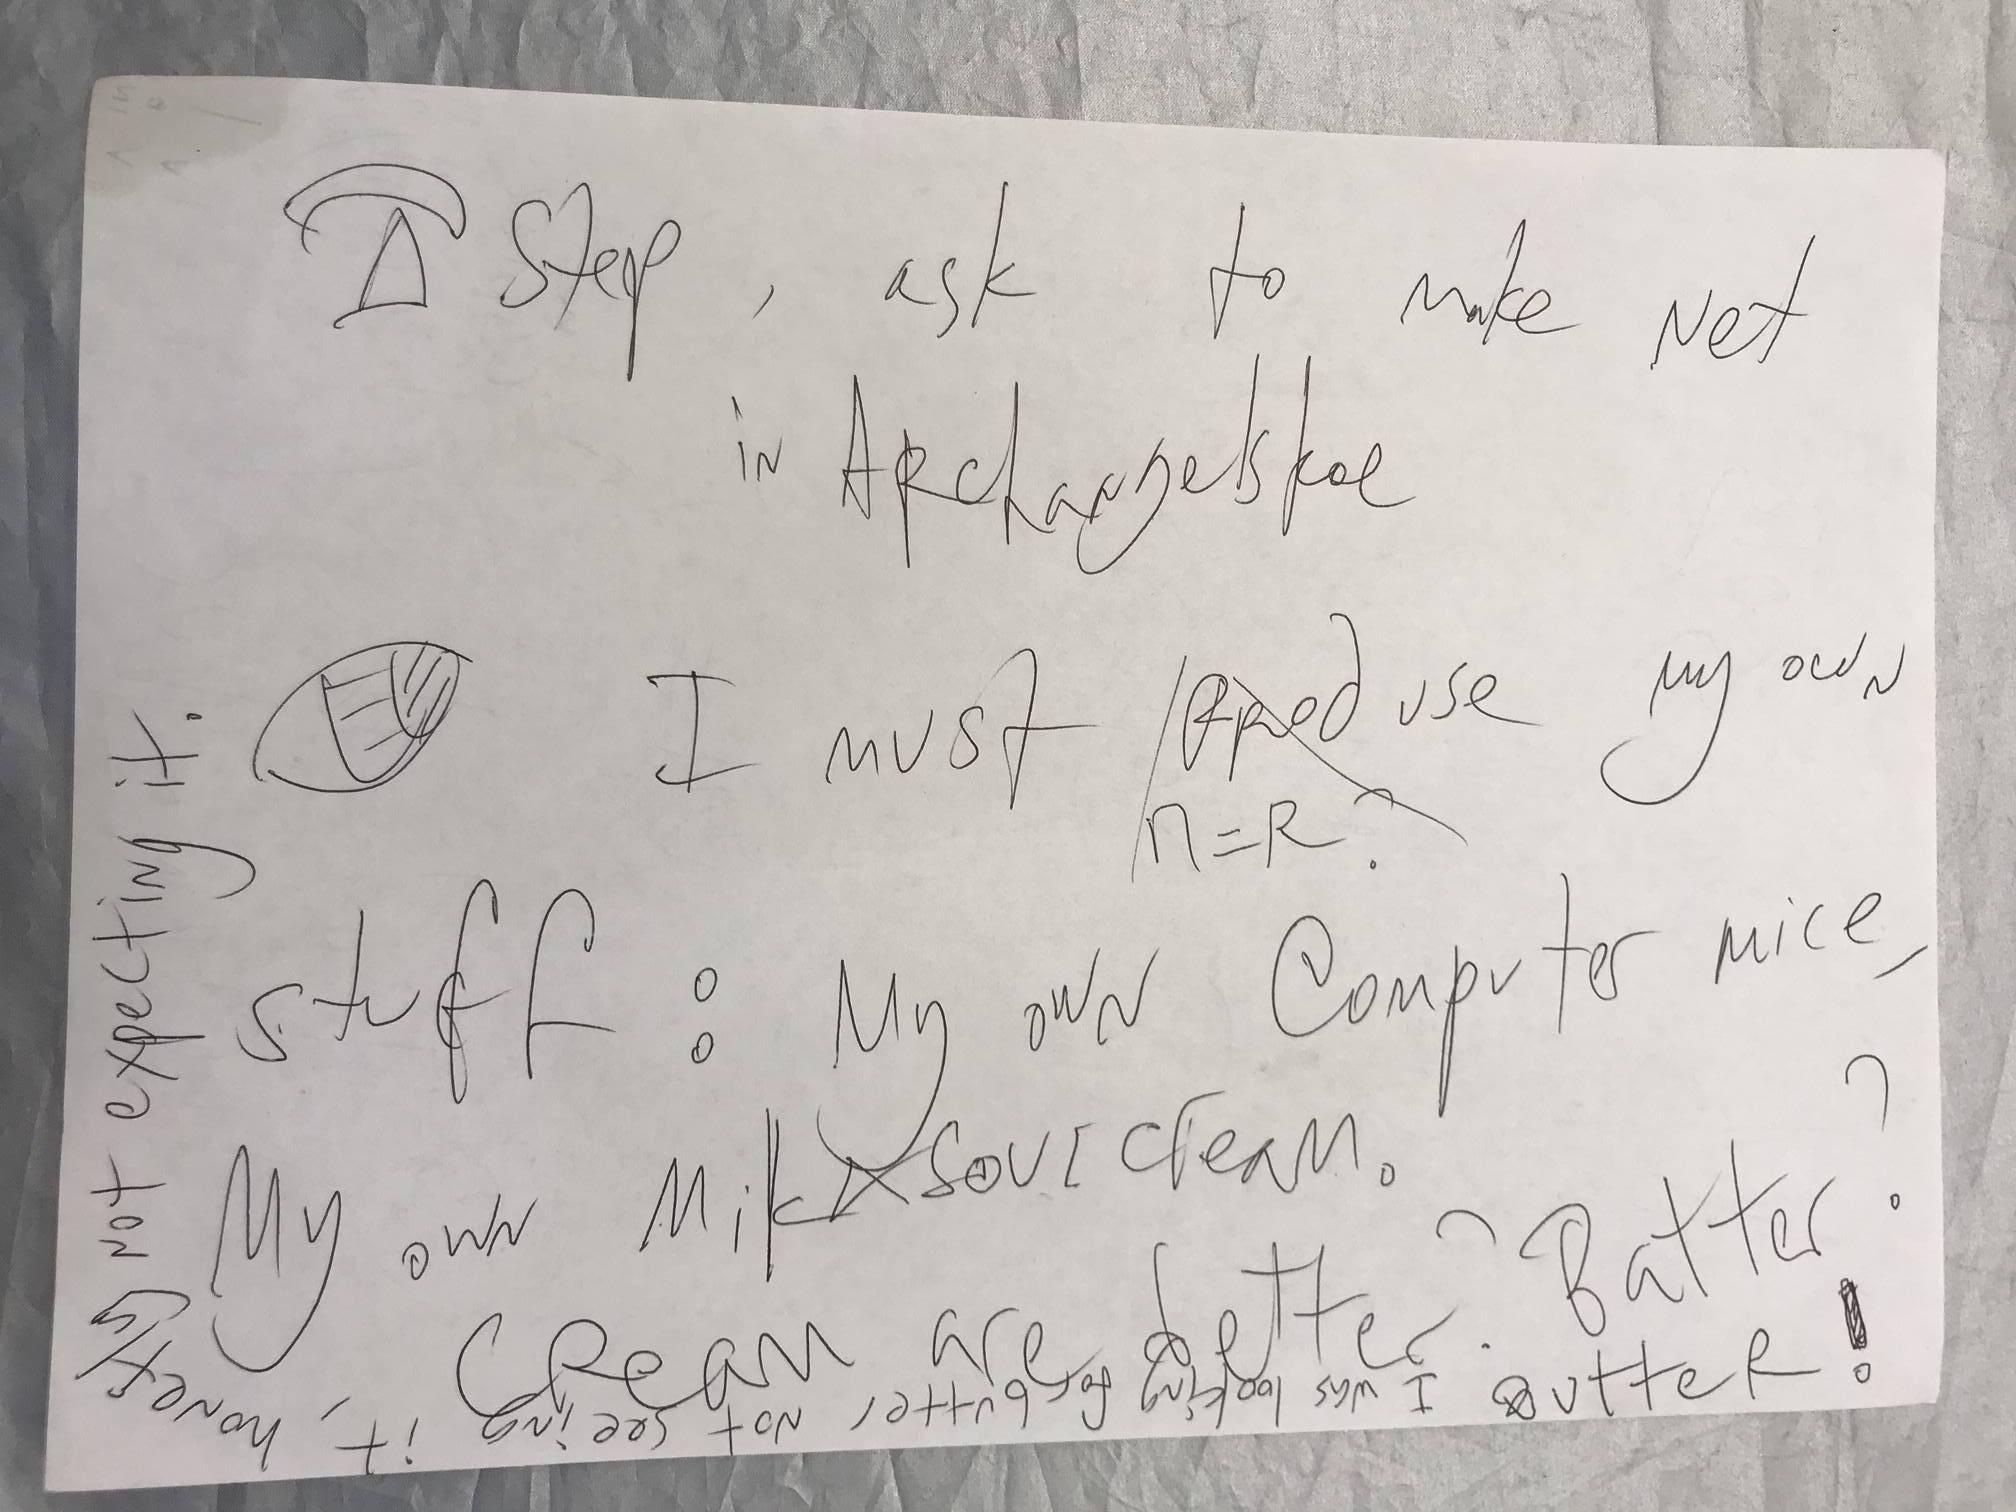 I Step, ask to make Net
in Archangelskoe
I must use my own
n=R?
stuff: My own Computer mice,
My own Milk sour cream.
Cream are better. Batter?
Butter!
I was looking for butter, not seeing it, honestly
not expecting it.